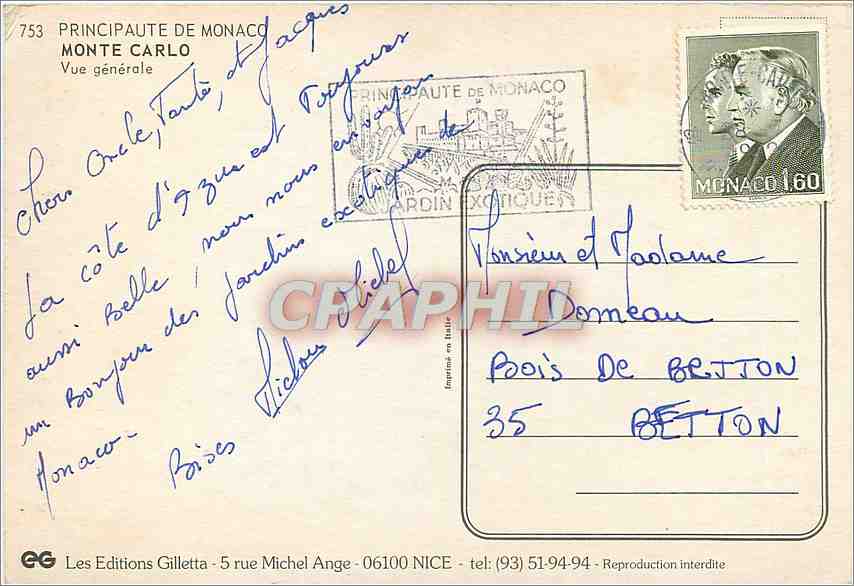 753 PRINCIPAUTE DE MONACO
MONTE CARLO
Vue générale
Chers Oncle, Tante, et Jacques
La côte d'Azur est Toujours
aussi Belle, nous nous envoyons
un Bonjour des Jardins exotiques de
Monaco-
Bises Michou Michel
PRINCIPAUTE DE MONACO
JARDIN EXOTIQUE
MONACO 1,60
Monsieur et Madame
Domeau
Bois DE BETTON
35 BETTON
CPAPHIL
Imprimé en Italie
EG Les Editions Gilletta - 5 rue Michel Ange - 06100 NICE - tel: (93) 51-94-94 - Reproduction interdite